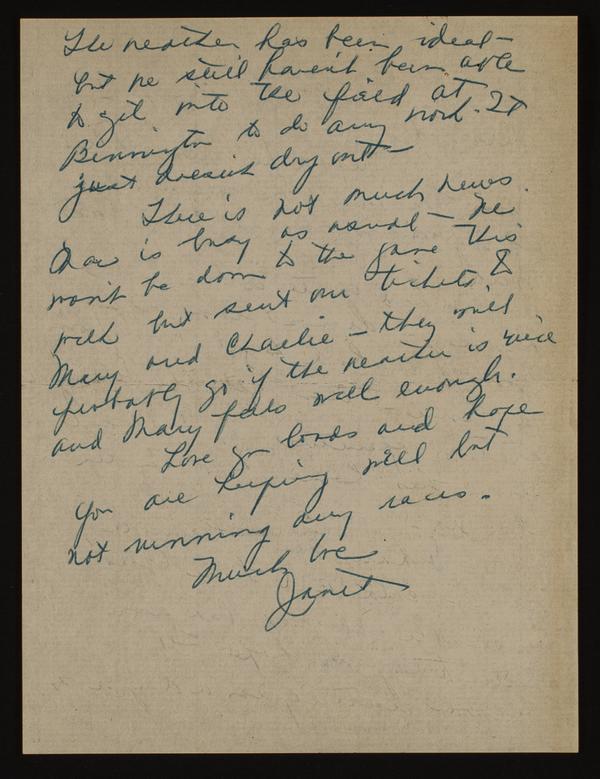 The weather has been ideal -
but we still haven't been able
to get into the field at
Bennington to do any work. It
just doesn't dry out -
There is not much news.
is busy as usual - We
won't be down to the game this
week but sent our tickets to
Mary and Charlie - they will
probably go if the weather is nice
and Mary feels well enough.
Love you loads and hope
you are keeping well but
not running any races.
Much love
Janet